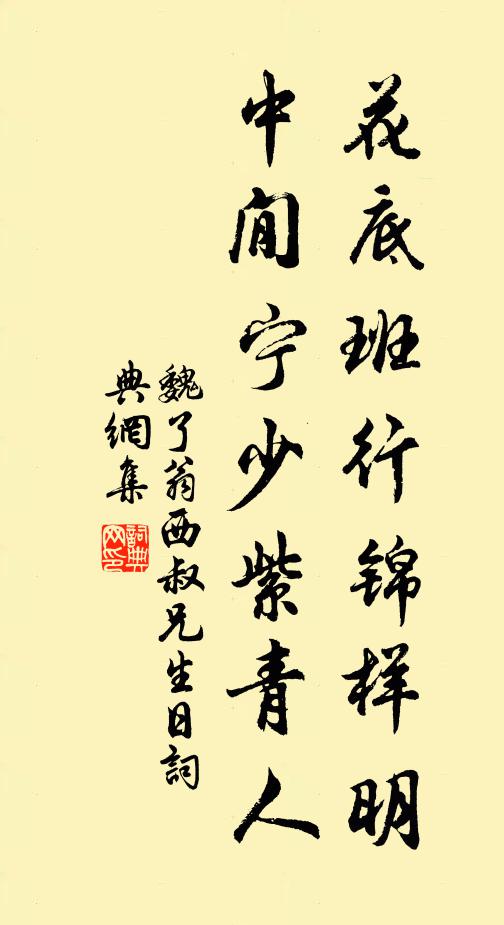 花底班行锦样明
中间宁少紫青人
魏了翁西叔兄生日詞
典網集
詞典網印